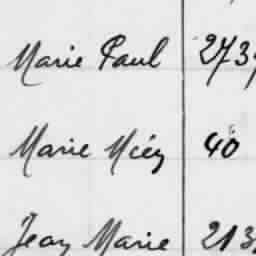 Marie Paul 273
Marie 40
Jean Marie 213